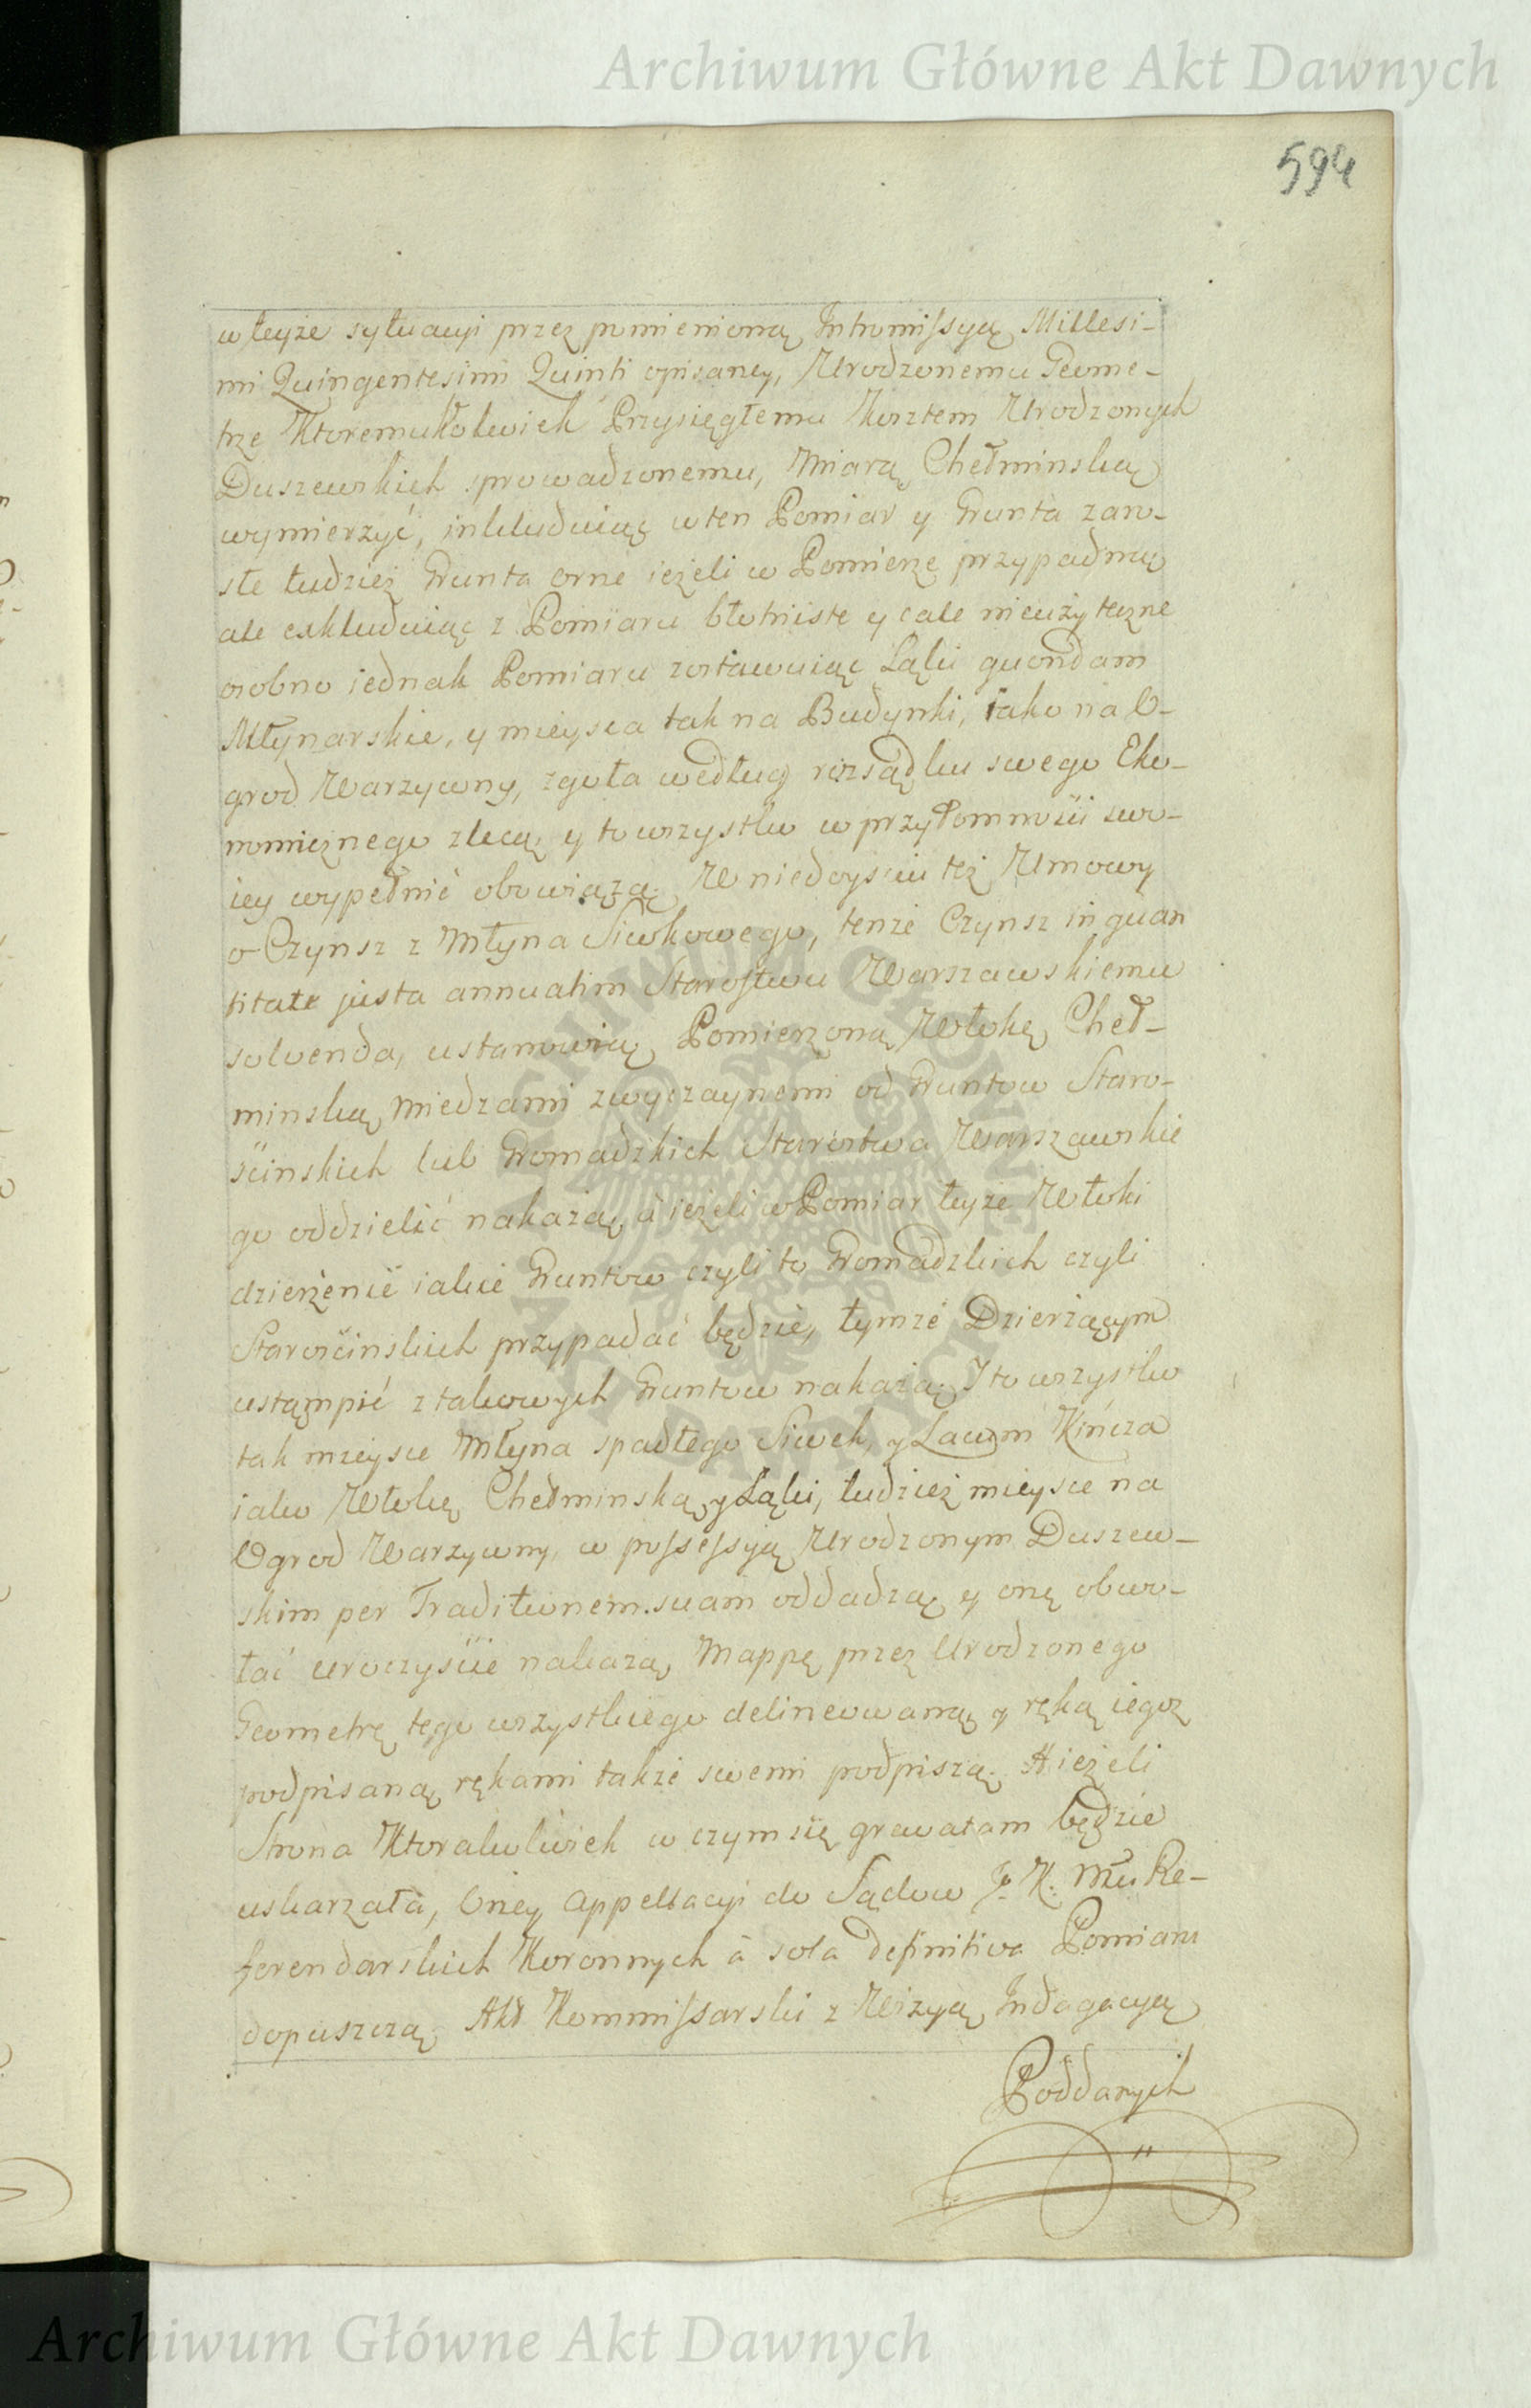 Archiwum Główne Akt Dawnych
594
w teyże sytuacyi przez pomienioną Intromissyą Millesi-
mi Quingentesimi Quinti opisaney, Urodzonemu Geome-
trze Ktoremukolwiek Przysięgłemu Kosztem Urodzonych
Duszewskich sprowadzonemu, Miarą Chełminską
wymierzyć, inkluduiąc w ten Pomiar y Grunta zaro-
słe tudzież Grunta orne ieżeli w Pomierze przypadną
ale exkluduiąc z Pomiaru błotniste y cale nieużyteczne
osobno iednak Pomiaru zostawuiąc Łąki quondam
Młynarskie, y mieysca tak na Budynki, iako na O-
grod Warzywny, zgoła według rozsądku swego Eko-
nomicznego zlecą y to wszystko w przytomności swo-
iey wypełnić obowiążą. W niedoyściu też Umowy
o Czynsz z Młyna Siwkowego, tenże Czynsz in quan
titate justa annuatim Starostwu Warszawskiemu
solvenda, ustanowią Pomierzoną Włokę Cheł-
minską Miedzami zwyczaynemi od Gruntow Staro-
ścinskich lub Gromadzkich Starostwa Warszawskie
go oddzielić nakażą, á ieżeli w Pomiar teyże Włoki
dzierżenie iakie Gruntow czyli to Gromadzkich czyli
Starościnskich przypadać będzie, tymże Dzierżącym
ustąmpić z takowych Gruntow nakażą. I to wszystko
tak mieysce Młyna spadłego Siwek, y Lacum Kińcza
iako Włokę Chełminską, y Łąki, tudzież mieysce na
Ogrod Warzywny, w possessyą Urodzonym Duszew-
skim per Traditionem suam oddadzą y onę obwo-
łać uroczyście nakażą, Mappę przez Urodzonego
Geometrę tego wszystkiego delineowaną y ręką iegoż
podpisaną rękami także swemi podpiszą. A ieżeli
Strona Ktorakolwiek w czym się gravatam będzie
uskarzała, Oney Appellacyi do Sądow J. K. Mci Re-
ferendarskich Koronnych á sola definitiva Pomiaru
dopuszczą. Akt Kommissarski z Wizyą Indagacyą
Poddanych
Archiwum Główne Akt Dawnych